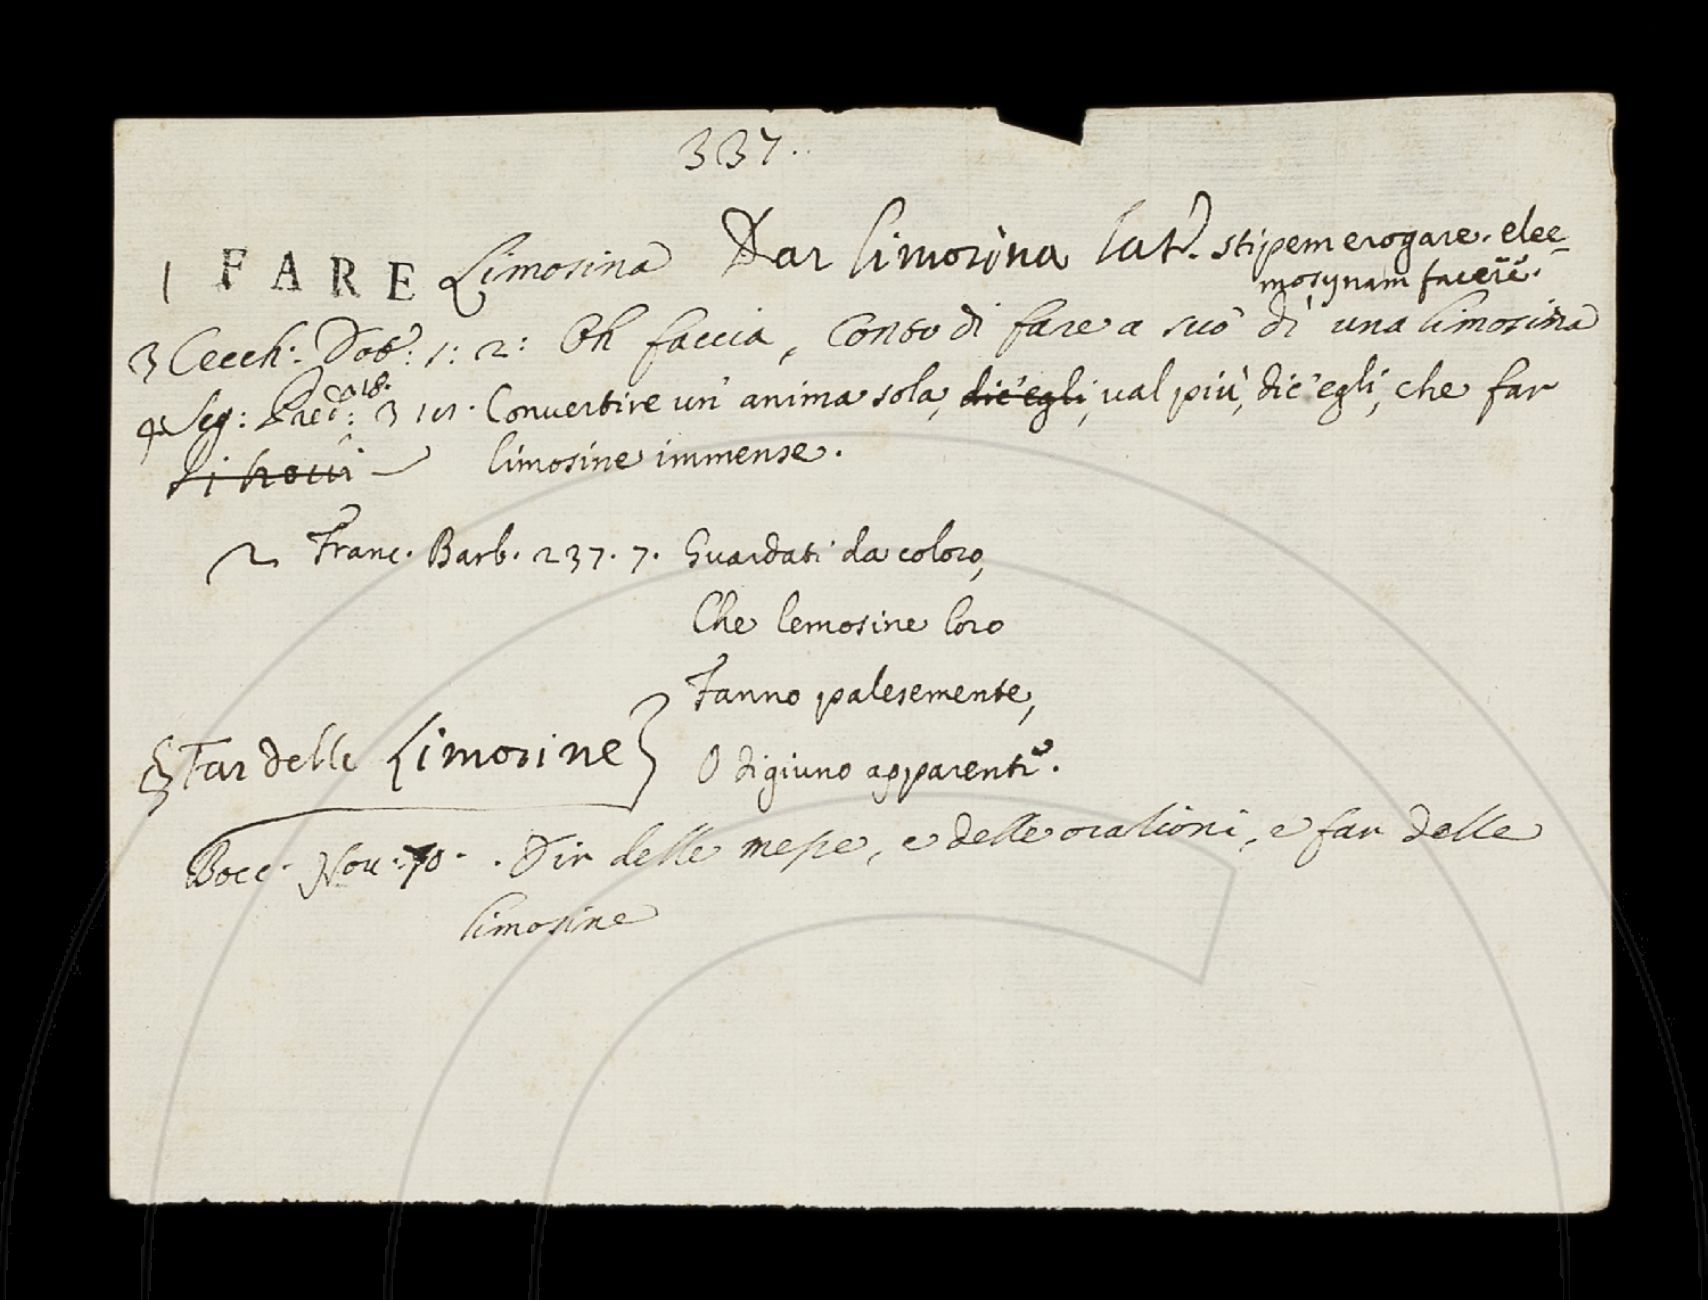 337.
1 FARE Limosina Dar limosina lat. stipem erogare. elee-
mosynam facere.
3 Cecch: Dot: 1: 2: Oh faccia, conto di fare a suo dì una limosina
4 Seg: Pred: 3 18. Convertire un'anima sola, dic'egli, val più, dic'egli, che far
limosine immense.
2 Franc. Barb. 237. 7. Guardati da coloro,
Che lemosine loro
Fanno palesemente,
O digiuno apparente.
Far delle Limosine
Bocc. Nov. 70. Dir delle messe, e delle orationi, e far delle
limosine